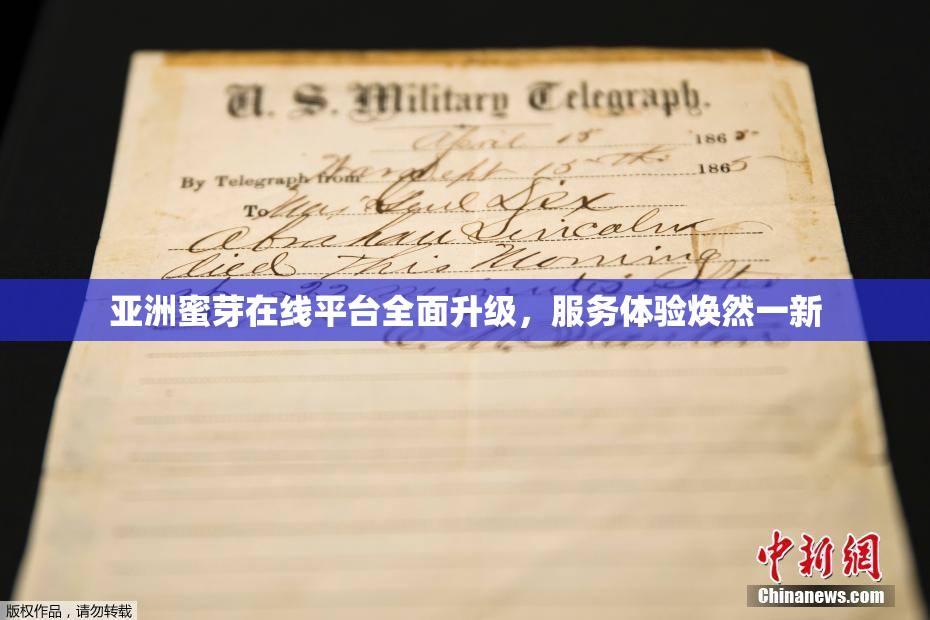 U. S. Military Telegraph.
April 15 1865.
By Telegraph from War Dept 15th 1865
To Maj Genl Dix
Abraham Lincoln
died This Morning
at 22 minutes after
亚洲蜜芽在线平台全面升级，服务体验焕然一新
E. M. Stanton
中新网
Chinanews.com
版权作品，请勿转载